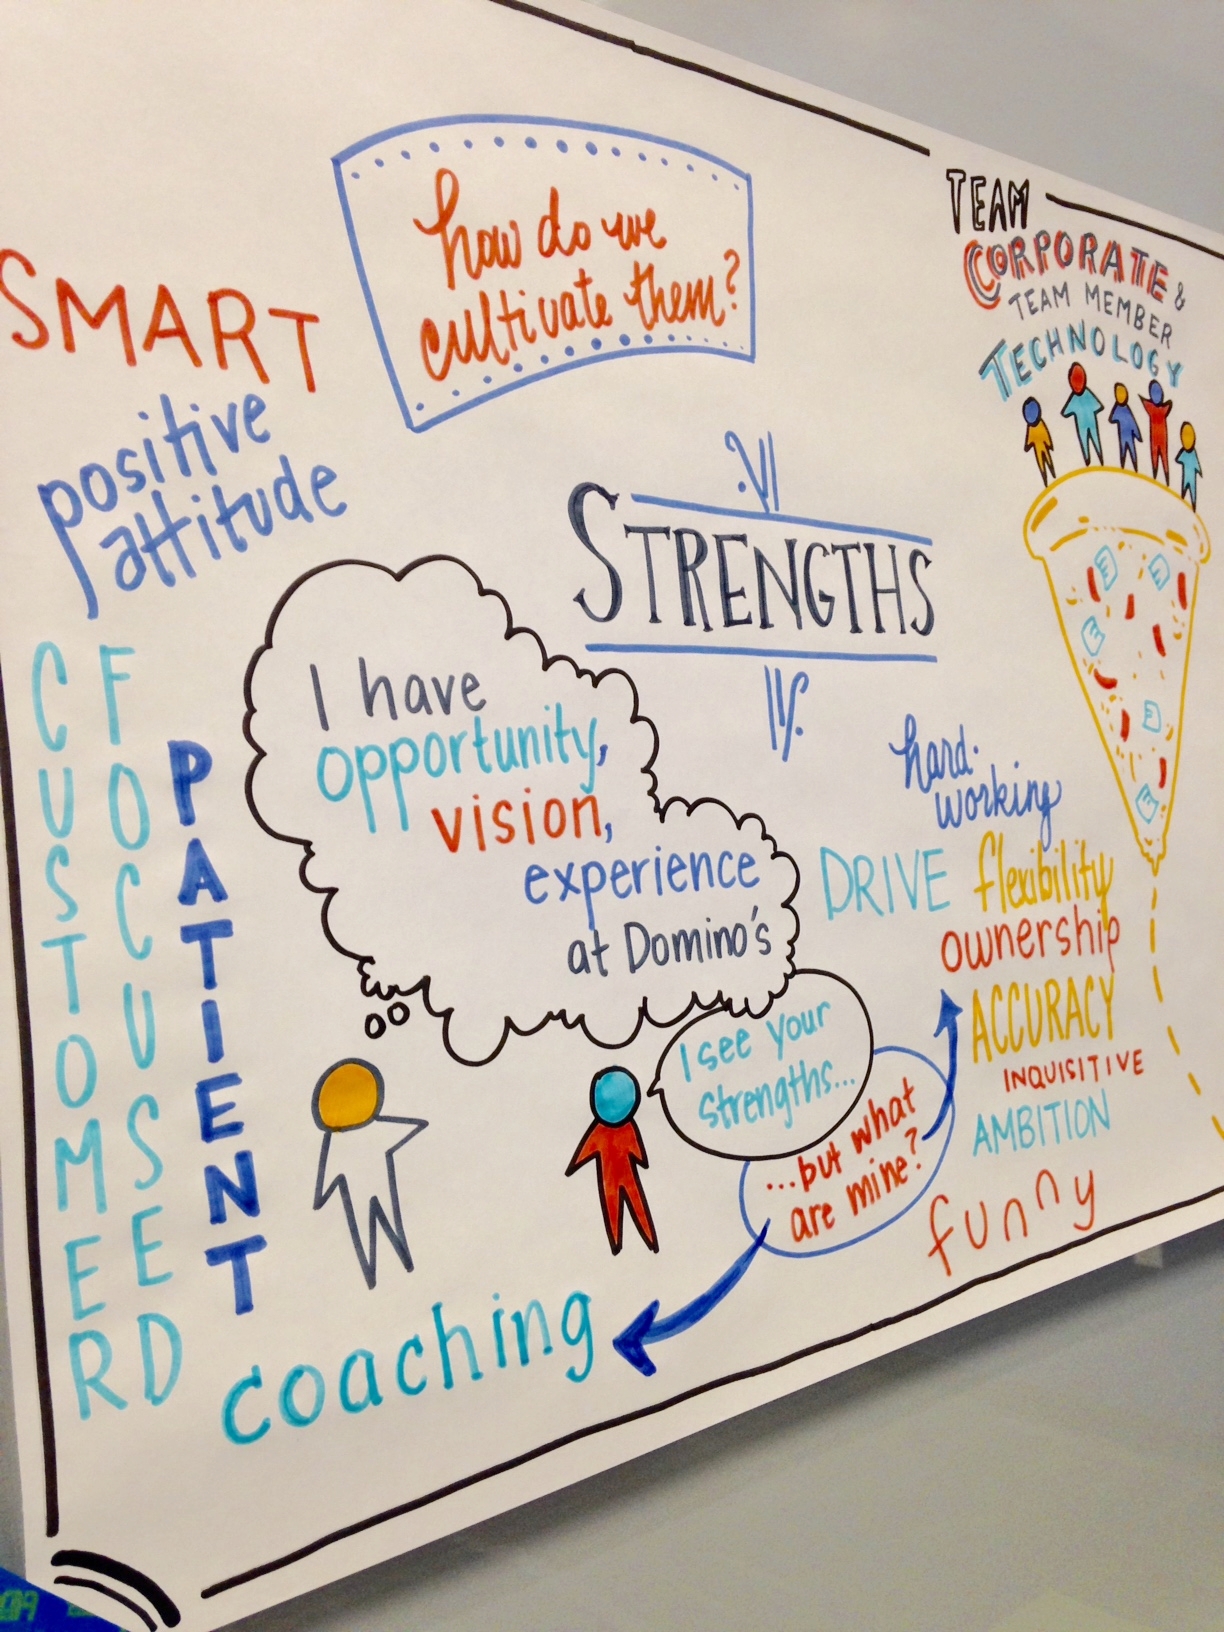 how do we
cultivate them?
TEAM
CORPORATE &
TEAM MEMBER
TECHNOLOGY
SMART
positive
attitude
STRENGTHS
CUSTOMER
FOCUSED
PATIENT
I have
opportunity,
vision,
experience
at Domino's
I see your
strengths...
...but what
are mine?
hard-
working
DRIVE
flexibility
ownership
ACCURACY
INQUISITIVE
AMBITION
funny
coaching